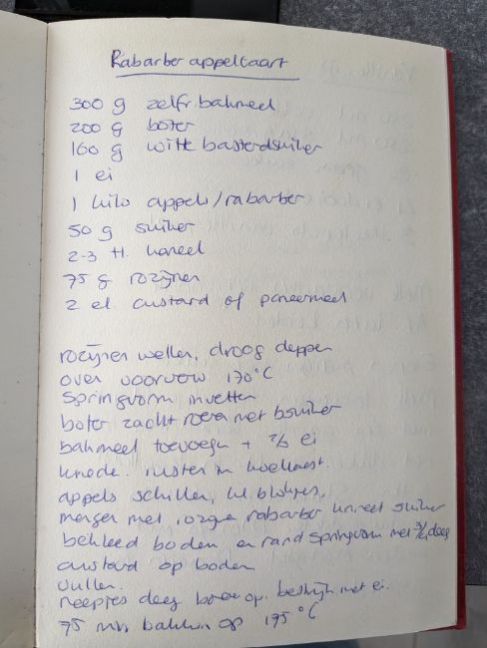 Rabarber appeltaart
300 g zelfr. bakmeel
200 g boter
160 g witte basterdsuiker
1 ei
1 kilo appels/rabarber
50 g suiker
2-3 tl. kaneel
75 g rozijnen
2 el. custard of paneermeel
rozijnen wellen, droog deppen
oven voorverw 170°C
Springvorm invetten
boter zacht roeren met bsuiker
bakmeel toevoegen + ei
knede. rusten in koelkast.
appels schillen, blokjes,
mengen met rozijn rabarber kaneel suiker
bekleed bodem en rand springvorm met deeg
custard op bodem
vullen.
reepjes deeg boven op. bestrijk met ei.
75 min bakken op 175°C